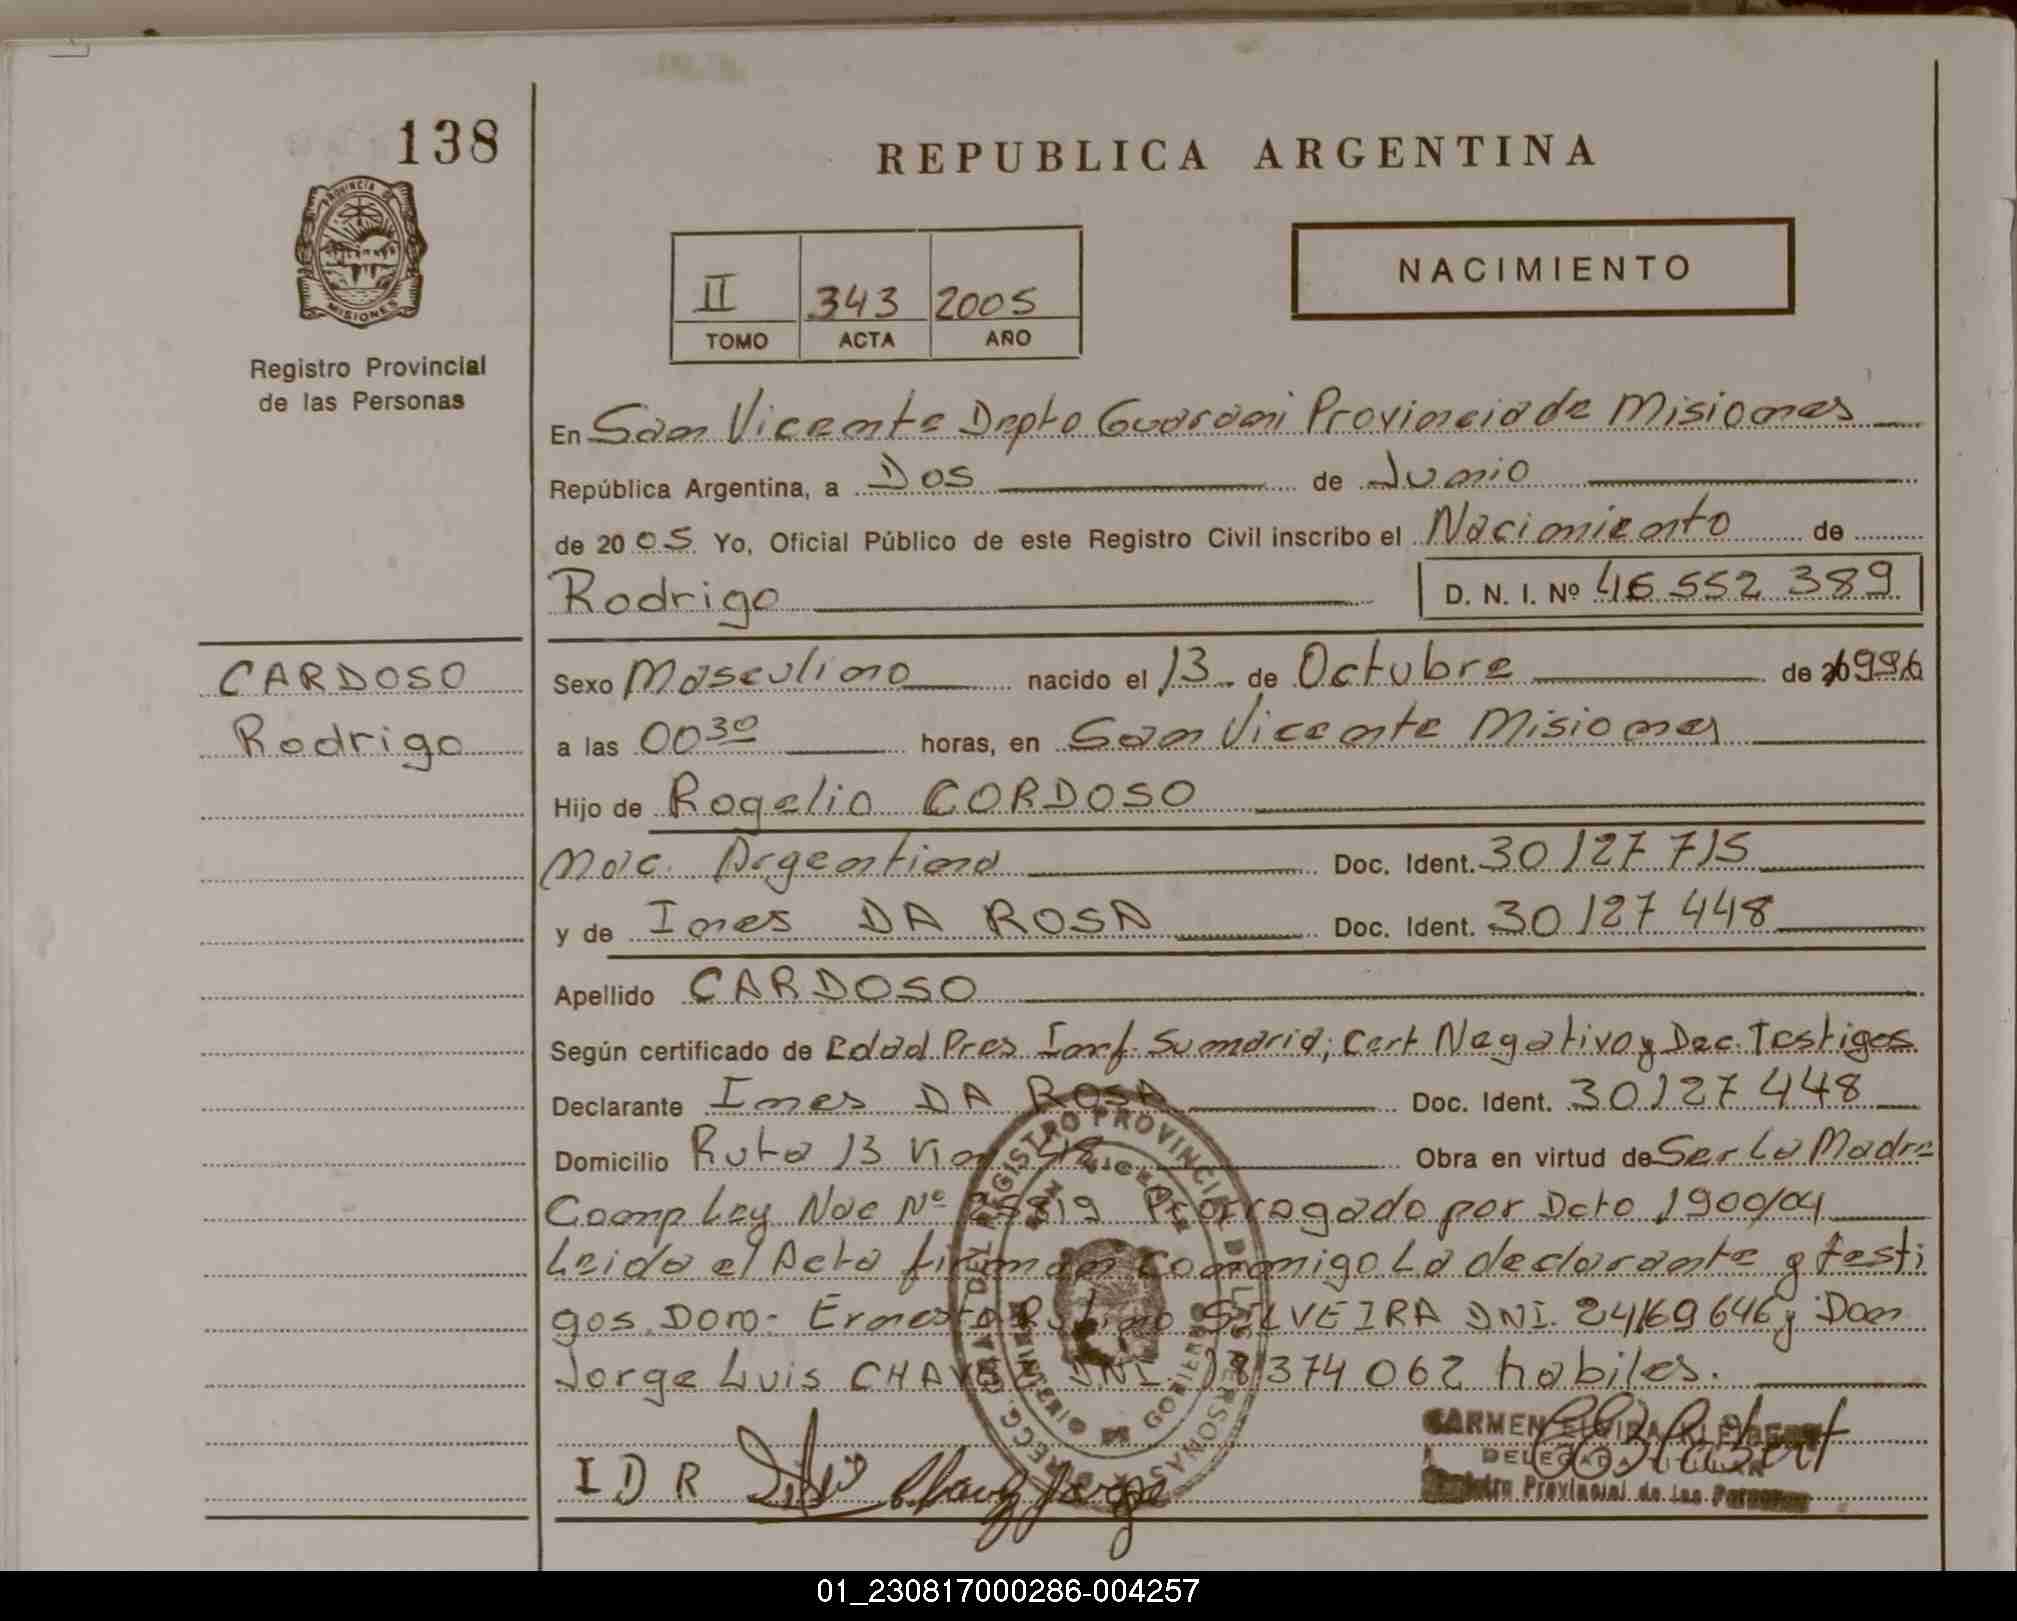 138
REPUBLICA ARGENTINA
PROVINCIA DE
MISIONES
Registro Provincial
de las Personas
II 343 2005
TOMO ACTA AÑO
NACIMIENTO
En San Vicente Depto Guarani Provincia de Misiones
República Argentina, a Dos de Junio
de 2005 Yo, Oficial Público de este Registro Civil inscribo el Nacimiento de
Rodrigo D. N. I. Nº 46 552 389
CARDOSO
Rodrigo
Sexo Masculino nacido el 13 de Octubre de 1996
a las 00 30 horas, en San Vicente Misiones
Hijo de Rogelio CORDOSO
Nac. Argentina Doc. Ident. 30 127 715
y de Ines DA ROSA Doc. Ident. 30 127 448
Apellido CARDOSO
Según certificado de Edad Pres Inf. Sumaria; Cert Negativo y Dec. Testigos
Declarante Ines DA ROSA Doc. Ident. 30 127 448
Domicilio Ruta 13 Obra en virtud de Ser La Madre
Comp Ley Nac Nº 25819 Prorrogado por Dcto 1900/04
Leida el Acta firman Conmigo La declarante y testi
gos Don- Ernesto SILVEIRA DNI. 24169646 y Don
Jorge Luis DNI 18374062 habiles.
I D R
CARMEN ELVIRA
DELEGADA TITULAR
Registro Provincial de las Personas
REGISTRO PROVINCIAL DE LAS PERSONAS
01_230817000286-004257